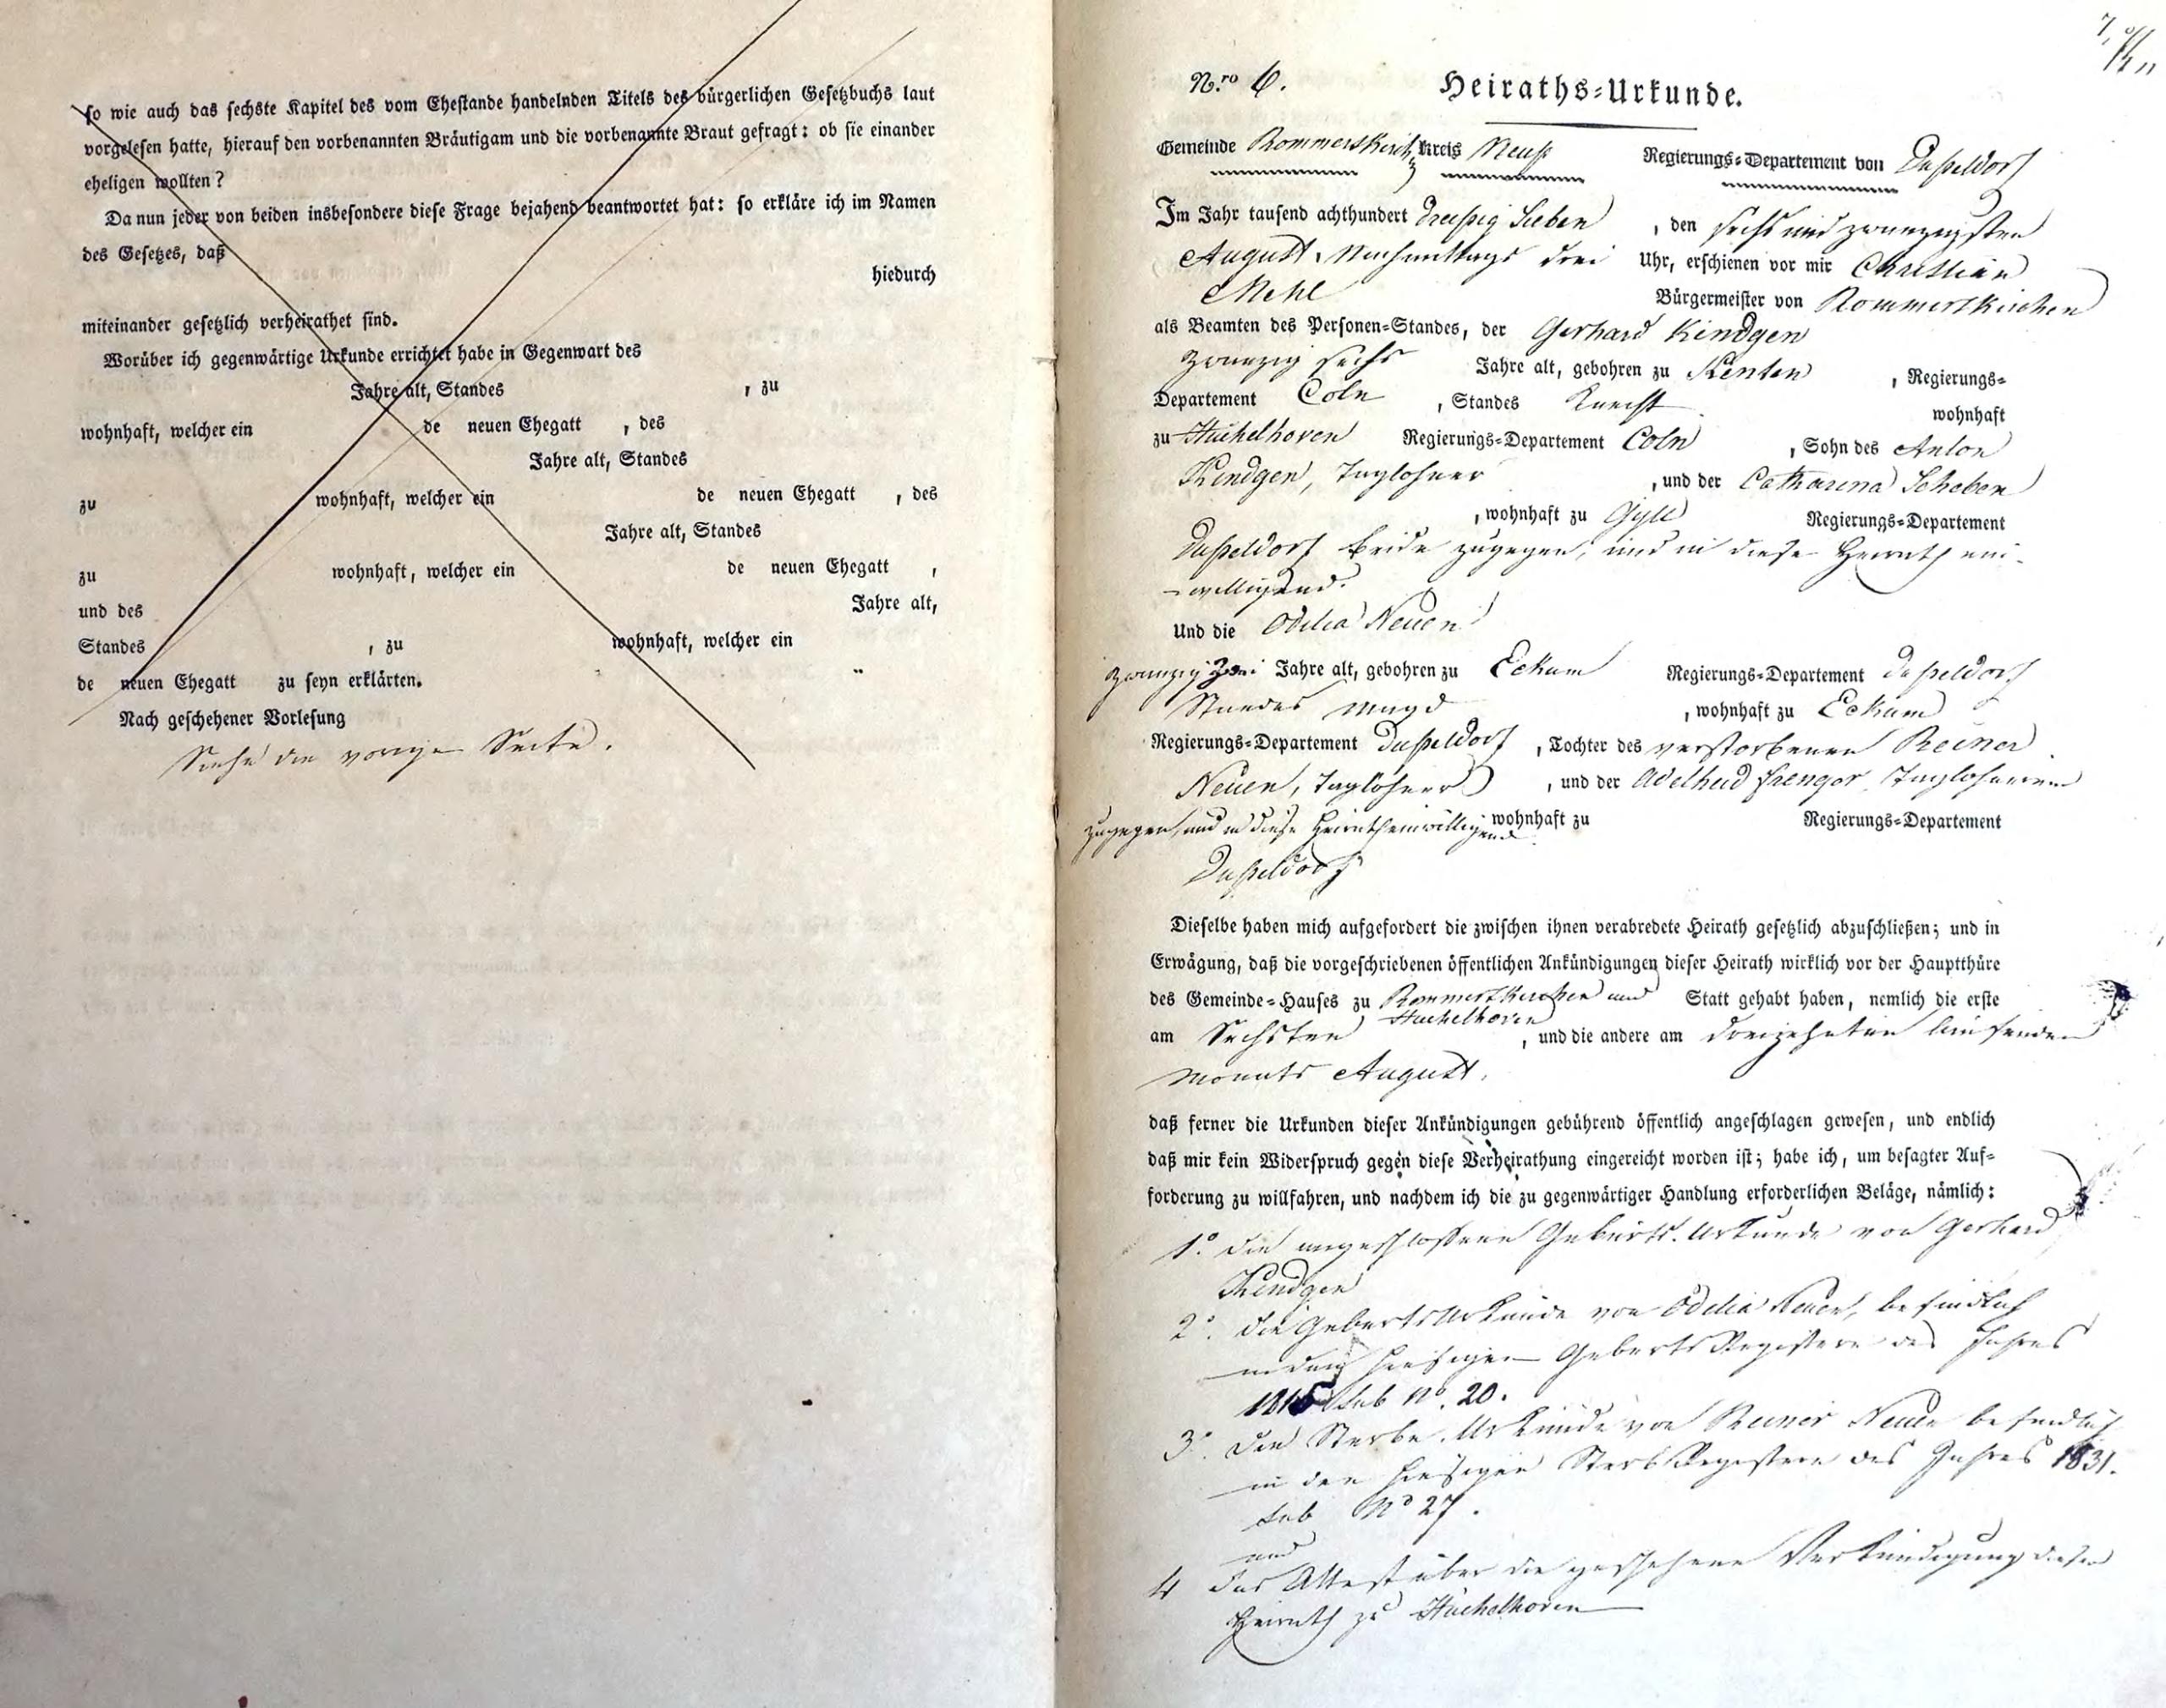 so wie auch das sechste Kapitel des vom Ehestande handelnden Titels des bürgerlichen Gesetzbuchs laut
vorgelesen hatte, hierauf den vorbenannten Bräutigam und die vorbenannte Braut gefragt: ob sie einander
eheligen wollten?
Da nun jeder von beiden insbesondere diese Frage bejahend beantwortet hat: so erkläre ich im Namen
des Gesetzes, daß
hiedurch
miteinander gesetzlich verheirathet sind.
Worüber ich gegenwärtige Urkunde errichtet habe in Gegenwart des
Jahre alt, Standes , zu
wohnhaft, welcher ein de neuen Ehegatt , des
Jahre alt, Standes
zu wohnhaft, welcher ein de neuen Ehegatt , des
Jahre alt, Standes
zu wohnhaft, welcher ein de neuen Ehegatt ,
und des Jahre alt,
Standes , zu wohnhaft, welcher ein
de neuen Ehegatt zu seyn erklärten.
Nach geschehener Vorlesung
Siehe die vorige Seite.
N.ro 6. Heiraths-Urkunde.
Gemeinde Rommerskirch Kreis Neuß Regierungs-Departement von Dußeldorf
Im Jahr tausend achthundert dreißig Sieben , den sechs und zwanzigsten
August, Nachmittags drei Uhr, erschienen vor mir Christian
Mehl Bürgermeister von Rommerskirchen
als Beamten des Personen-Standes, der Gerhard Kindgen
zwanzig sechs Jahre alt, gebohren zu Kenten , Regierungs-
Departement Coln , Standes Knecht wohnhaft
zu Hüchelhoven Regierungs-Departement Coln , Sohn des Anton
Kindgen, Taglöhner , und der Catharina Scheben
, wohnhaft zu Gyll Regierungs-Departement
Dußeldorf beide zugegen, und in diese Heirath ein-
-willigend.
Und die Odilia Neuen
zwanzig zwei Jahre alt, gebohren zu Eckum Regierungs-Departement Dußeldorf
Standes Magd , wohnhaft zu Eckum
Regierungs-Departement Dußeldorf , Tochter des verstorbenen Reiner
Neuen, Taglöhner , und der Adelheid Frenger Taglöhnerin
zugegen, und in diese Heirath einwilligend wohnhaft zu Regierungs-Departement
Dußeldorf
Dieselbe haben mich aufgefordert die zwischen ihnen verabredete Heirath gesetzlich abzuschließen; und in
Erwägung, daß die vorgeschriebenen öffentlichen Ankündigungen dieser Heirath wirklich vor der Hauptthüre
des Gemeinde-Hauses zu Rommerskirchen und Statt gehabt haben, nemlich die erste
Hüchelhoven
am Sechsten , und die andere am dreizehnten laufenden
Monats August.
daß ferner die Urkunden dieser Ankündigungen gebührend öffentlich angeschlagen gewesen, und endlich
daß mir kein Widerspruch gegen diese Verheirathung eingereicht worden ist; habe ich, um besagter Auf-
forderung zu willfahren, und nachdem ich die zu gegenwärtiger Handlung erforderlichen Beläge, nämlich:
1.° die angeschlossene Geburts-Urkunde von Gerhard
Kindgen
2.° die Geburts Urkunde von Odilia Neuen, befindlich
in den hiesigen Geburts Registern des Jahres
1815 sub N.° 20.
3.° Die Sterbe-Urkunde von Reiner Neuen befindlich
in den hiesigen Sterb Registern des Jahres 1831.
sub N° 27.
und
4 das Attest über die geschehene Verkündigung dieser
Heirath zu Hüchelhoven